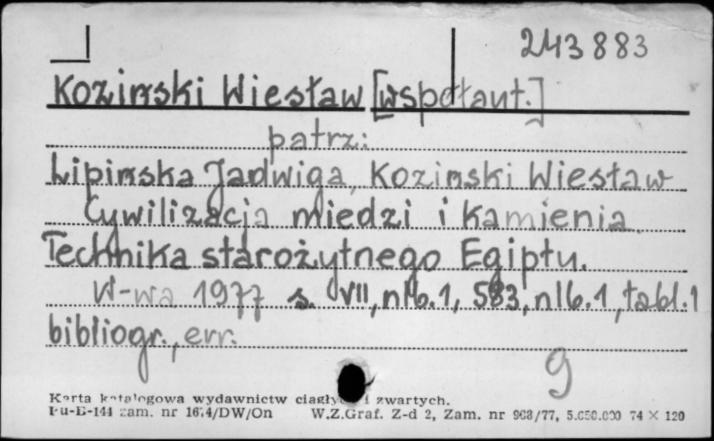 243883
Koziński Wiesław [współaut.]
patrz:
Lipińska Jadwiga, Koziński Wiesław
Cywilizacja miedzi i kamienia.
Technika starożytnego Egiptu.
W-wa 1977 s. VII, nlb. 1, 583, nlb. 1, tabl. 1
bibliogr., err.
g
Karta katalogowa wydawnictw ciągłych i zwartych.
Pu-E-144 zam. nr 1674/DW/On W.Z.Graf. Z-d 2, Zam. nr 968/77, 5.050.000 74 × 120